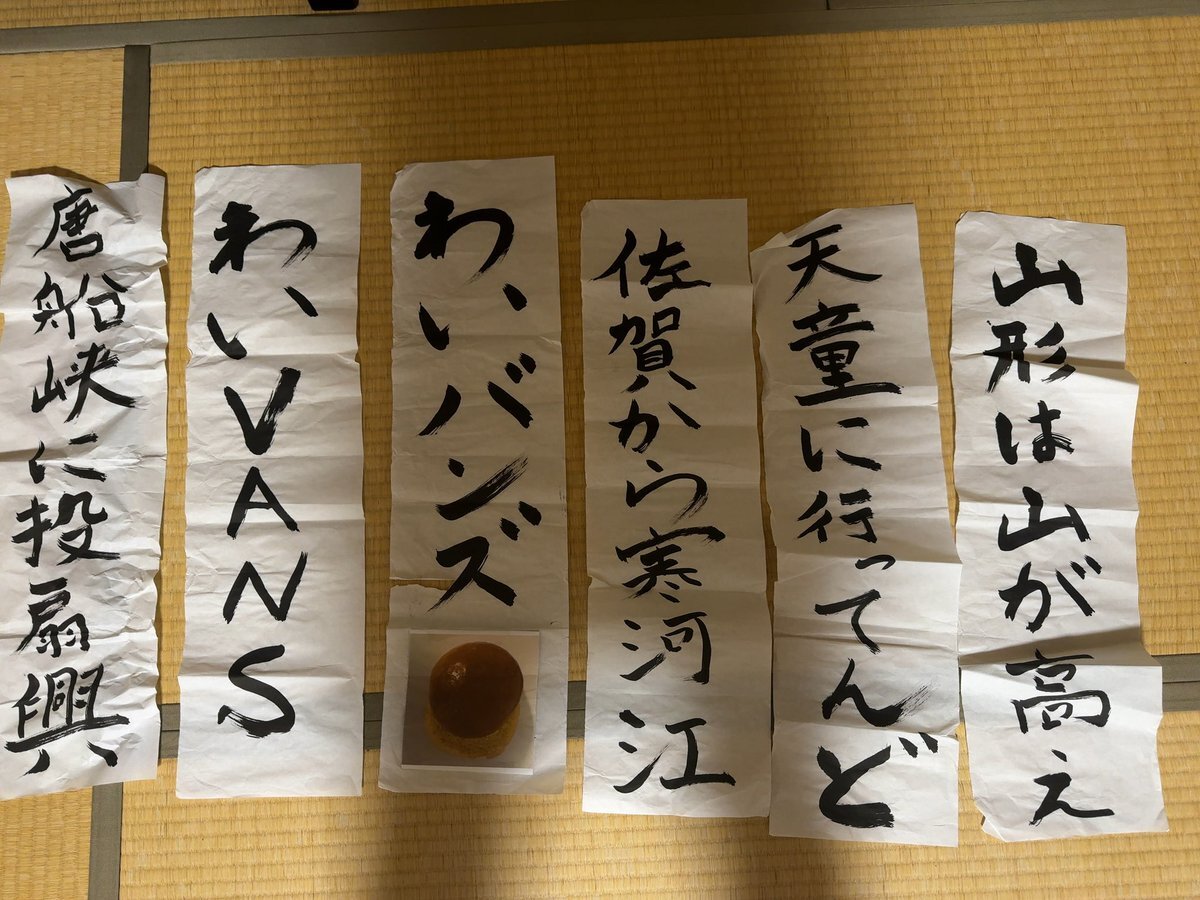 山形は山が高え
天童に行ってんど
佐賀から寒河江
わいバンズ
わいVANS
唐船峡に投扇興